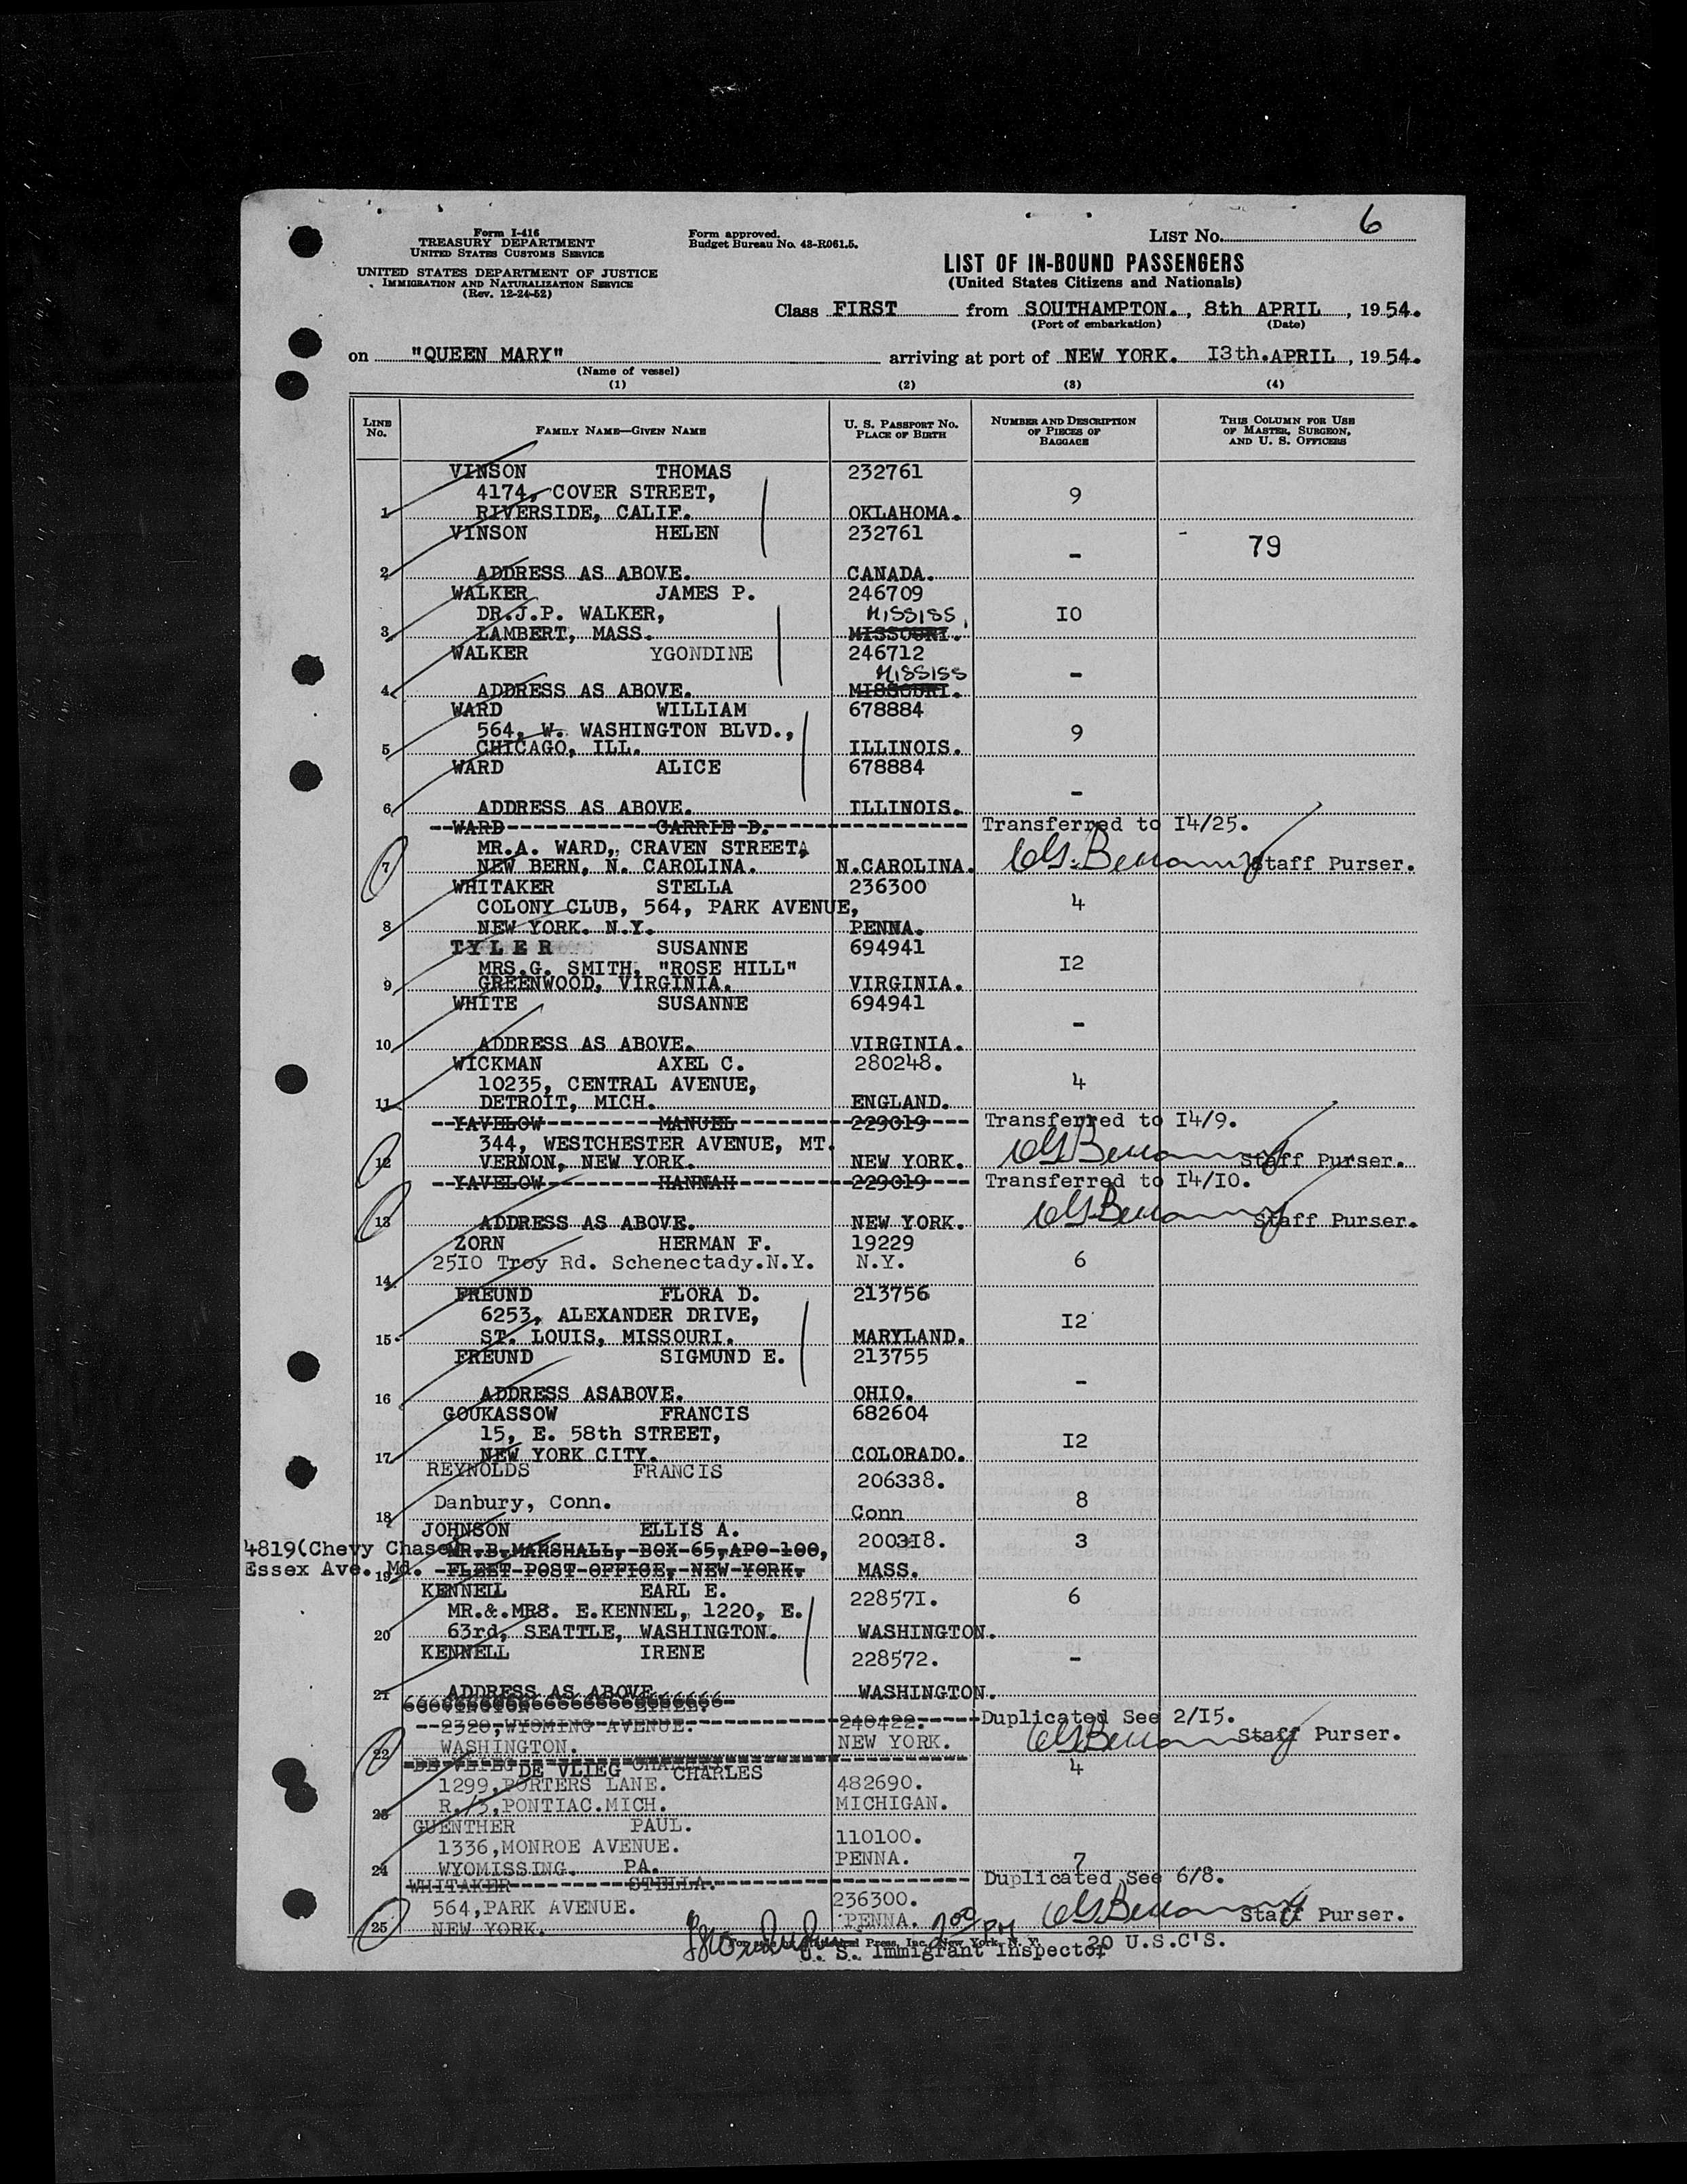 6
Form I-416
TREASURY DEPARTMENT
UNITED STATES CUSTOMS SERVICE
UNITED STATES DEPARTMENT OF JUSTICE
IMMIGRATION AND NATURALIZATION SERVICE
(Rev. 12-24-52)
Form approved.
Budget Bureau No. 43-R061.5.
LIST NO.
LIST OF IN-BOUND PASSENGERS
(United States Citizens and Nationals)
Class FIRST from SOUTHAMPTON., 8th APRIL, 1954.
(Port of embarkation) (Date)
on "QUEEN MARY" arriving at port of NEW YORK. I3th.APRIL, 1954.
(Name of vessel)
(1) (2) (3) (4)
LINE NO. FAMILY NAME—GIVEN NAME U. S. PASSPORT NO. PLACE OF BIRTH NUMBER AND DESCRIPTION OF PIECES OF BAGGAGE THIS COLUMN FOR USE OF MASTER, SURGEON, AND U. S. OFFICERS
VINSON THOMAS 232761
4174, COVER STREET, 9
1 RIVERSIDE, CALIF. OKLAHOMA.
VINSON HELEN 232761
- 79
2 ADDRESS AS ABOVE. CANADA.
WALKER JAMES P. 246709
DR.J.P. WALKER, MISSISS. IO
3 LAMBERT, MASS. MISSOURI.
WALKER YGONDINE 246712
MISSISS -
4 ADDRESS AS ABOVE. MISSOURI.
WARD WILLIAM 678884
564, W. WASHINGTON BLVD., 9
5 CHICAGO, ILL. ILLINOIS.
WARD ALICE 678884
-
6 ADDRESS AS ABOVE. ILLINOIS.
WARD CARRIE D. Transferred to I4/25.
MR.A. WARD, CRAVEN STREET,
7 NEW BERN, N. CAROLINA. N.CAROLINA. Staff Purser.
WHITAKER STELLA 236300
COLONY CLUB, 564, PARK AVENUE, 4
8 NEW YORK. N.Y. PENNA.
TYLER SUSANNE 694941
MRS.G. SMITH, "ROSE HILL" I2
9 GREENWOOD, VIRGINIA. VIRGINIA.
WHITE SUSANNE 694941
-
10 ADDRESS AS ABOVE. VIRGINIA.
WICKMAN AXEL C. 280248.
10235, CENTRAL AVENUE, 4
11 DETROIT, MICH. ENGLAND.
YAVELOW MANUEL 229019 Transferred to I4/9.
344, WESTCHESTER AVENUE, MT.
12 VERNON, NEW YORK. NEW YORK. Staff Purser.
YAVELOW HANNAH 229019 Transferred to I4/IO.
13 ADDRESS AS ABOVE. NEW YORK. Staff Purser.
ZORN HERMAN F. 19229
25IO Troy Rd. Schenectady.N.Y. N.Y. 6
14
FREUND FLORA D. 213756
6253, ALEXANDER DRIVE, I2
15 ST. LOUIS, MISSOURI. MARYLAND.
FREUND SIGMUND E. 213755
-
16 ADDRESS ASABOVE. OHIO.
GOUKASSOW FRANCIS 682604
15, E. 58th STREET, I2
17 NEW YORK CITY. COLORADO.
REYNOLDS FRANCIS 206338.
Danbury, Conn. 8
18 Conn
JOHNSON ELLIS A. 200318. 3
4819(Chevy Chase) MR.B.MARSHALL, BOX 65,APO 100,
Essex Ave. Md. 19 FLEET POST OFFICE, NEW YORK. MASS.
KENNELL EARL E. 22857I. 6
MR.&.MRS. E.KENNEL, 1220, E.
20 63rd, SEATTLE, WASHINGTON. WASHINGTON.
KENNELL IRENE 228572. -
21 ADDRESS AS ABOVE. WASHINGTON.
2320,WYOMING AVENUE. 240422. Duplicated See 2/I5.
22 WASHINGTON. NEW YORK. Staff Purser.
DE VLIEG CHARLES 4
1299,PORTERS LANE. 482690.
23 R./3,PONTIAC.MICH. MICHIGAN.
GUENTHER PAUL.
1336,MONROE AVENUE. 110100.
24 WYOMISSING. PA. PENNA. 7
WHITAKER STELLA. Duplicated See 6/8.
564,PARK AVENUE. 236300.
25 NEW YORK. PENNA. Staff Purser.
2 00 PM
U. S. Immigrant Inspector 20 U.S.C'S.